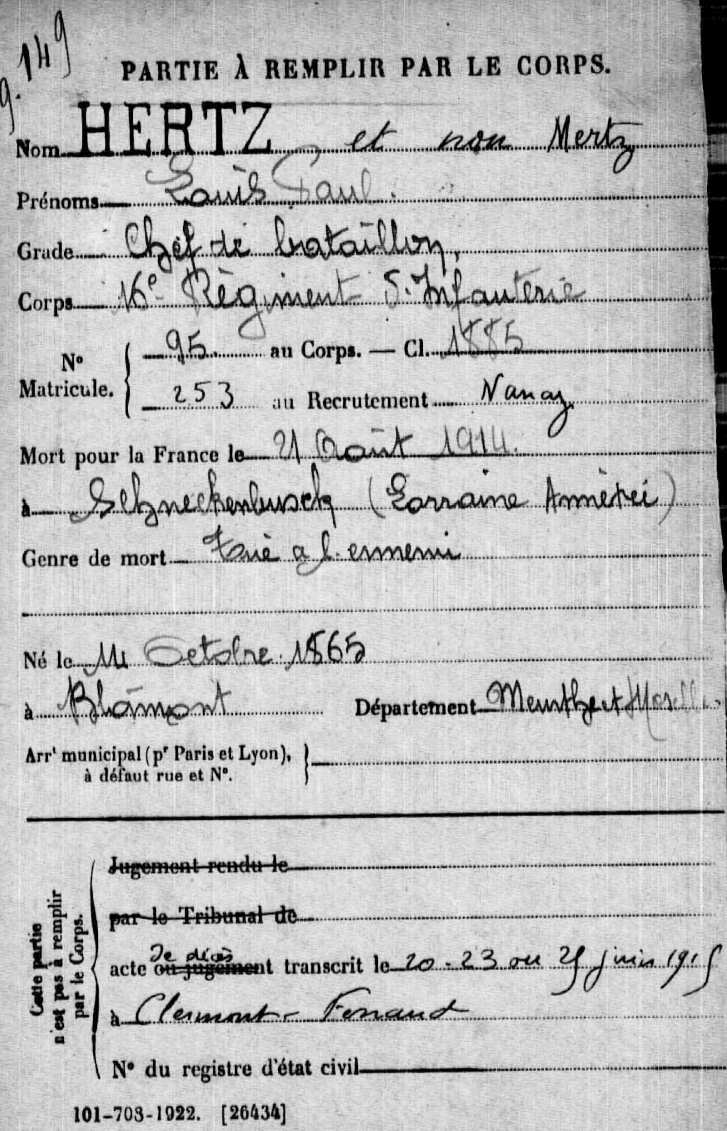 9.149
PARTIE À REMPLIR PAR LE CORPS.
Nom HERTZ et non Mertz
Prénoms Louis Paul.
Grade Chef de bataillon,
Corps 16e Régiment d'Infanterie
N° Matricule. 95 au Corps. — Cl. 1885
253 au Recrutement Nancy
Mort pour la France le 21 Août 1914.
à Schneckenbusch (Lorraine Annexée)
Genre de mort Tué à l'ennemi
Né le 11 Octobre 1865
à Blâmont Département Meurthe et Moselle
Arrt municipal (pr Paris et Lyon),
à défaut rue et N°.
Cette partie n'est pas à remplir par le Corps.
Jugement rendu le
par le Tribunal de
de décès
acte ou jugement transcrit le 20-23 ou 25 juin 1915
à Clermont-Ferrand
N° du registre d'état civil
101-708-1922. [26434]